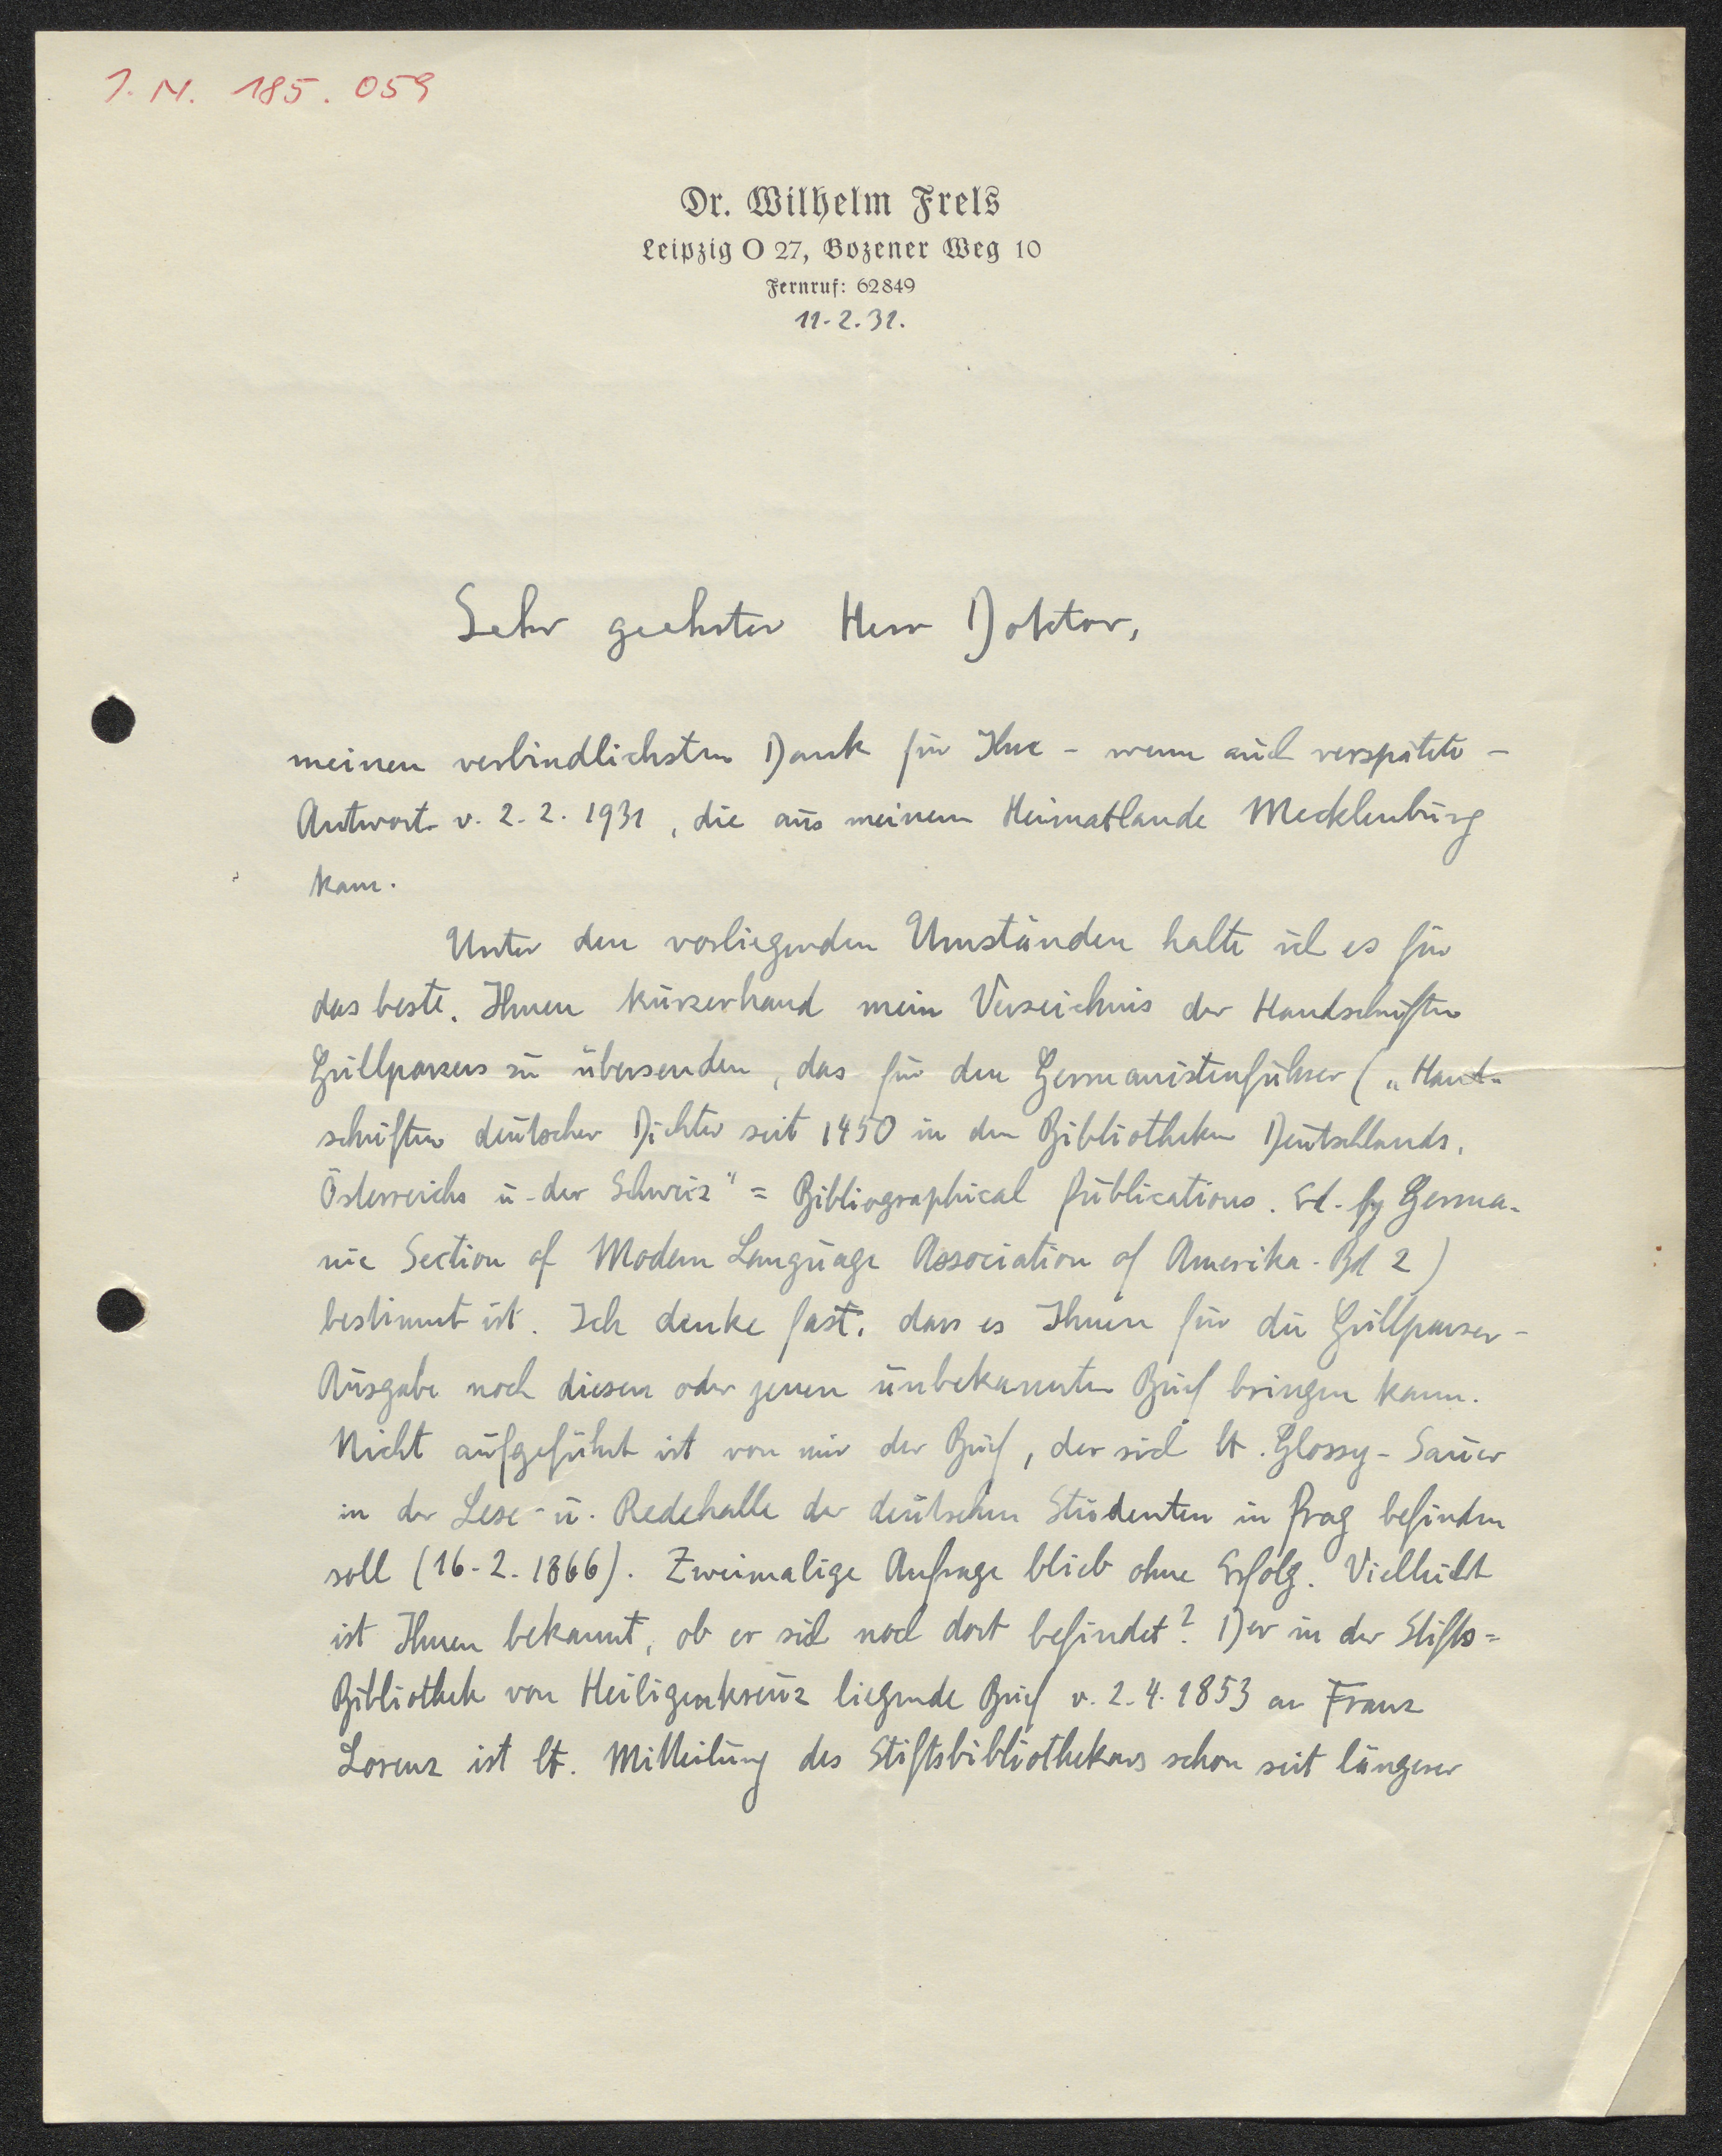 I. N. 185.059
Dr. Wilhelm Frels
Leipzig O 27, Bozener Weg 10
Fernruf: 62849
11.2.31.
Sehr geehrter Herr Doktor,
meinen verbindlichsten Dank für Ihre - wenn auch verspätete -
Antwort v. 2.2.1931, die aus meinem Heimatlande Mecklenburg
kam.
Unter den vorliegenden Umständen halte ich es für
das beste, Ihnen kurzerhand mein Verzeichnis der Handschriften
Grillparzers zu übersenden, das für den Germanistenführer („Hand-
schriften deutscher Dichter seit 1450 in den Bibliotheken Deutschlands,
Österreichs u. der Schweiz" = Bibliographical Publications. Ed. by Germa-
nic Section of Modern Language Association of Amerika. Bd 2)
bestimmt ist. Ich denke fast, dass es Ihnen für die Grillparzer-
Ausgabe noch diesen oder jenen unbekannten Brief bringen kann.
Nicht aufgeführt ist von mir der Brief, der sich lt. Glossy-Sauer
in der Lese- u. Redehalle der deutschen Studenten in Prag befinden
soll (16.2.1866). Zweimalige Anfrage blieb ohne Erfolg. Vielleicht
ist Ihnen bekannt, ob er sich noch dort befindet? Der in der Stifts=
Bibliothek von Heiligenkreuz liegende Brief v. 2.4.1853 an Franz
Lorenz ist lt. Mitteilung des Stiftsbibliothekars schon seit längerer